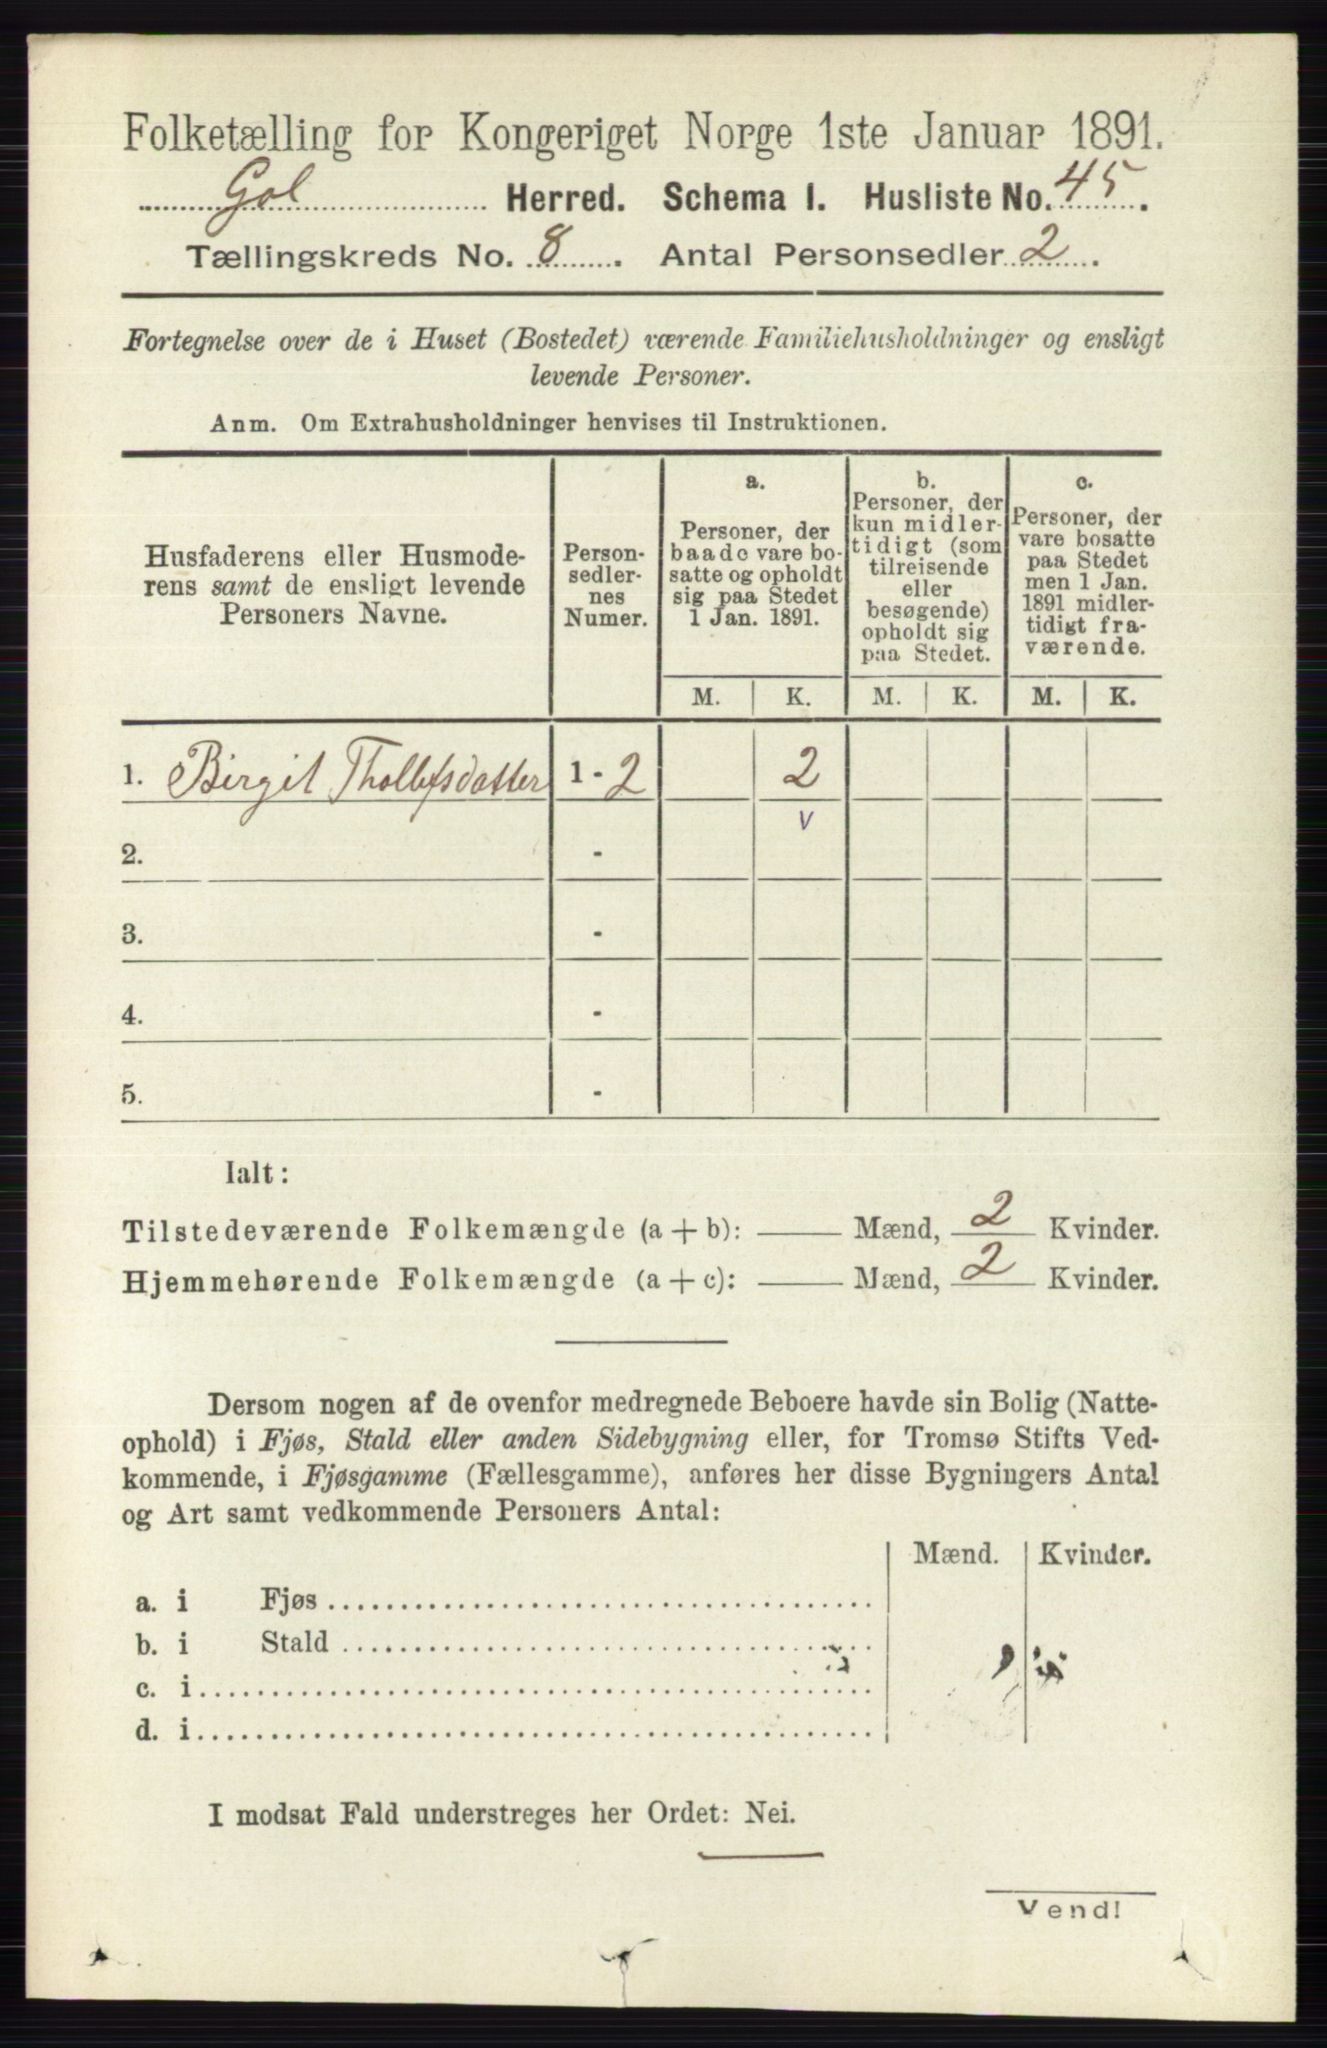 Folketælling for Kongeriget Norge 1ste Januar 1891.
Gol Herred. Schema I. Husliste No. 45.
Tællingskreds No. 8. Antal Personsedler 2.
Fortegnelse over de i Huset (Bostedet) værende Familiehusholdninger og ensligt
levende Personer.
Anm. Om Extrahusholdninger henvises til Instruktionen.
Husfaderens eller Husmode-
rens samt de ensligt levende
Personers Navne.
Person-
sedler-
nes
Numer.
a.
Personer, der
baade vare bo-
satte og opholdt
sig paa Stedet
1 Jan. 1891.
b.
Personer, der
kun midler-
tidigt (som
tilreisende
eller
besøgende)
opholdt sig
paa Stedet.
c.
Personer, der
vare bosatte
paa Stedet
men 1 Jan.
1891 midler-
tidigt fra-
værende.
M. K. M. K. M. K.
1. Birgit Thollefsdatter 1 - 2 2
v
2. -
3. -
4. -
5. -
Ialt:
Tilstedeværende Folkemængde (a + b): Mænd, 2 Kvinder.
Hjemmehørende Folkemængde (a + c): Mænd, 2 Kvinder.
Dersom nogen af de ovenfor medregnede Beboere havde sin Bolig (Natte-
ophold) i Fjøs, Stald eller anden Sidebygning eller, for Tromsø Stifts Ved-
kommende, i Fjøsgamme (Fællesgamme), anføres her disse Bygningers Antal
og Art samt vedkommende Personers Antal:
Mænd. Kvinder.
a. i Fjøs
b. i Stald
c. i
d. i
I modsat Fald understreges her Ordet: Nei.
Vend!